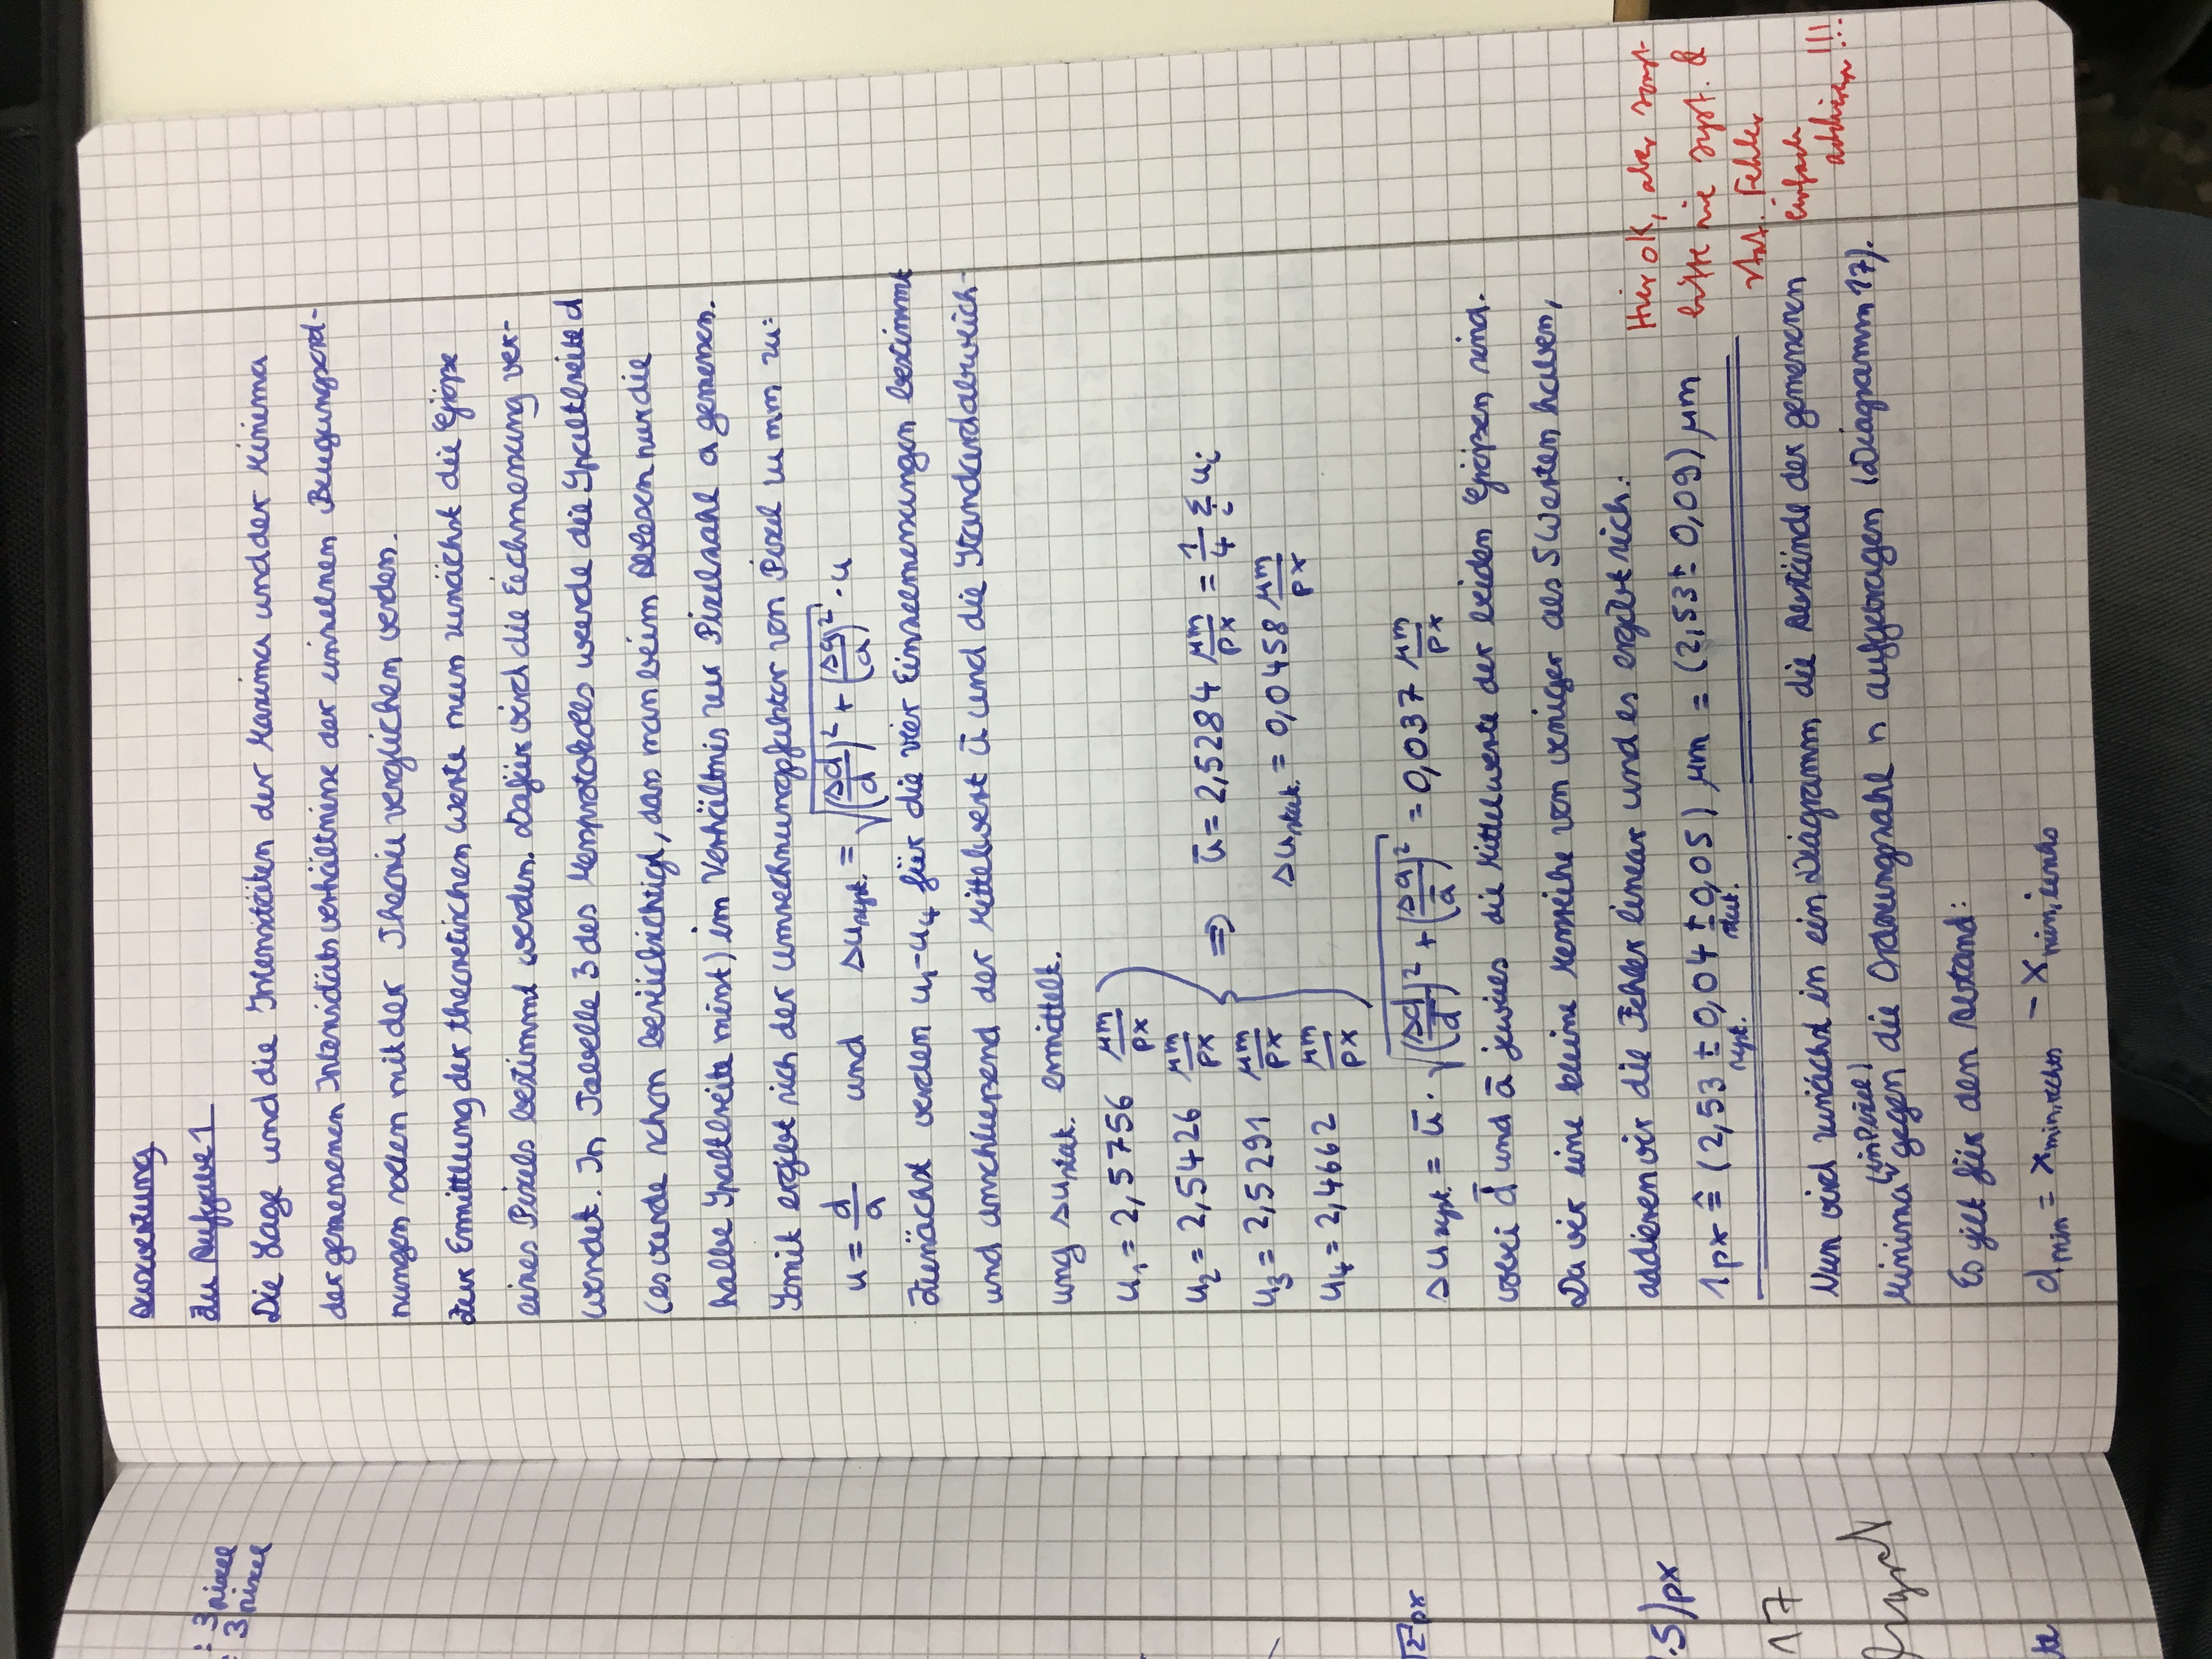 : 3 pixel
: 3 pixel
√2 px
.5) px
17
te
Auswertung
Zu Aufgabe 1
Die Lage und die Intensitäten der Maxima und der Minima
der gemessenen Intensitätsverhältnisse der einzelnen Beugungsord-
nungen sollen mit der Theorie verglichen werden.
Zur Ermittlung der theoretischen Werte muss zunächst die Größe
eines Pixels bestimmt werden. Dafür wird die Eichmessung ver-
wendet. In Tabelle 3 des Messprotokolls wurde die Spaltbreite d
(es wurde schon berücksichtigt, dass man beim Ablesen nur die
halbe Spaltbreite misst) im Verhältnis zur Pixelzahl a gemessen.
Somit ergibt sich der Umrechnungsfaktor von Pixel zu mm zu:
u = d/a und Δu_syst. = √((Δd/d)² + (Δa/a)²) · u
Zunächst werden u₁-u₄ für die vier Einzelmessungen bestimmt
und anschließend der Mittelwert ū und die Standardabweich-
ung Δu_stat. ermittelt.
u₁ = 2,5756 μm/px
u₂ = 2,5426 μm/px
u₃ = 2,5291 μm/px
u₄ = 2,4662 μm/px
⇒ ū = 2,5284 μm/px = 1/4 Σ_i u_i
Δu_stat. = 0,0458 μm/px
Δu_syst. = ū · √((Δd/d̄)² + (Δa/ā)²) = 0,037 μm/px
wobei d̄ und ā jeweils die Mittelwerte der beiden Größen sind.
Da wir eine kleine Messreihe von weniger als 5 Werten haben,
addieren wir die Fehler linear und es ergibt sich:
1px ≙ (2,53 ± 0,04 ± 0,05) μm = (2,53 ± 0,09) μm
syst. stat.
Hier ok, aber sonst
bitte nie syst. &
stat. Fehler
einfach
addieren!!!
Nun wird zunächst in ein Diagramm die Abstände der gemessenen
Minima (in Pixel) gegen die Ordnungszahl n aufgetragen (Diagramm 17).
Es gilt für den Abstand:
d_min = x_min,rechts - x_min,links